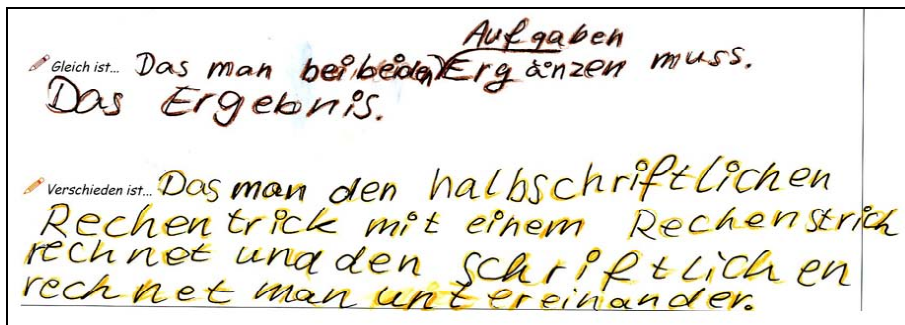 Aufgaben
Gleich ist... Das man bei beiden Ergänzen muss.
Das Ergebnis.
Verschieden ist... Das man den halbschriftlichen
Rechentrick mit einem Rechenstrich
rechnet und den schriftlichen
rechnet man untereinander.